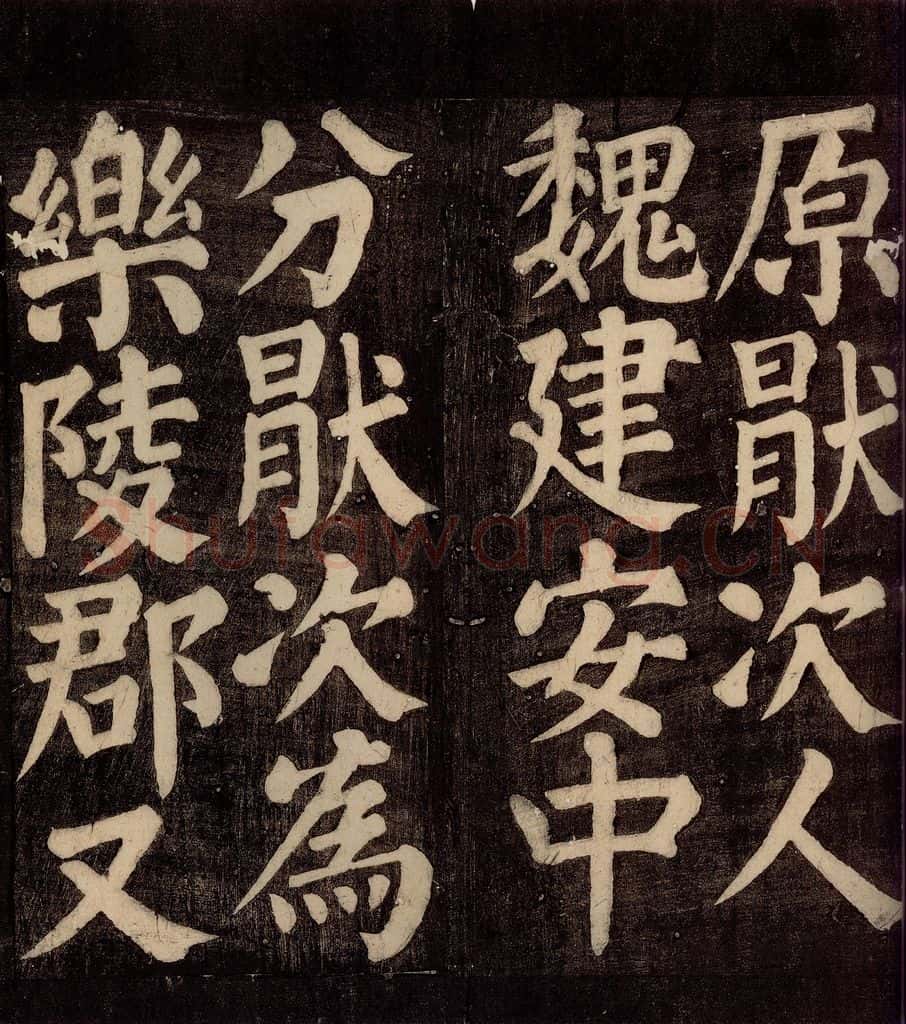 原猒次人
魏建安中
分猒次為
樂陵郡又
Shufawang.CN